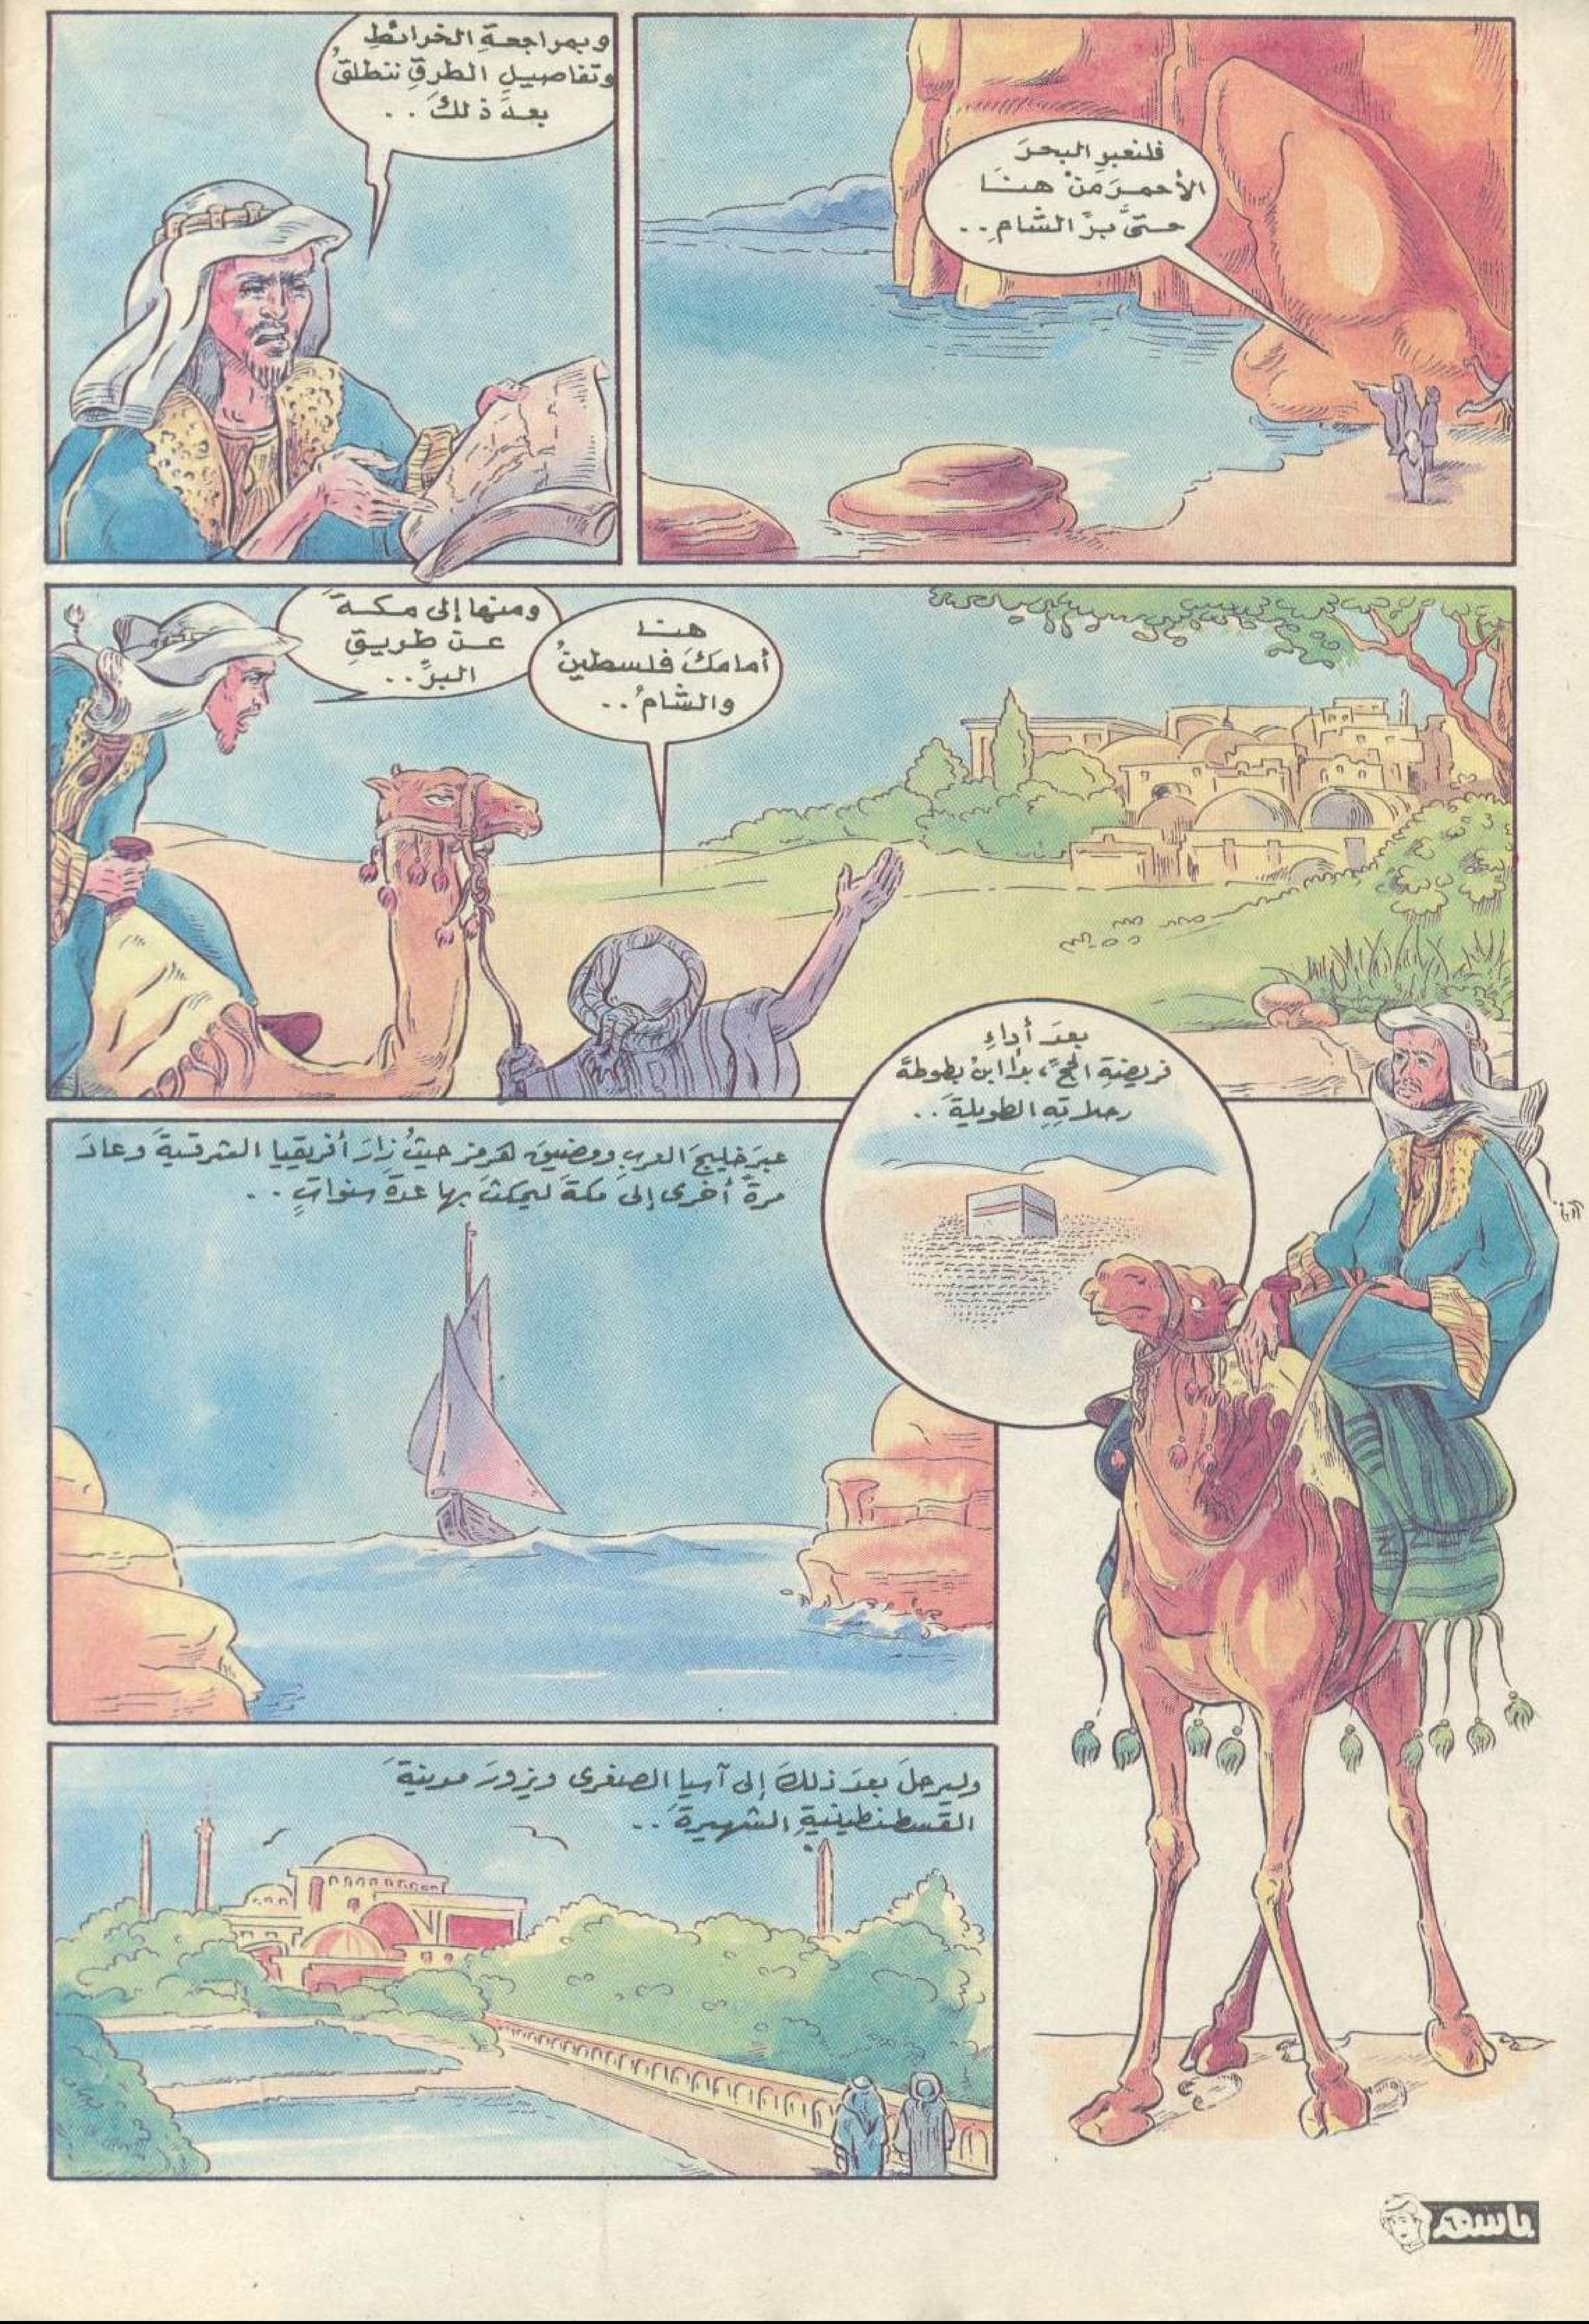 فلنعبرِ البحرَ
الأحمرَ منْ هنا
حتىَّ برِّ الشامِ..
وبمراجعةِ الخرائطِ
وتفاصيلِ الطرقِ ننطلقُ
بعدَ ذلكَ..
هنا
أمامكَ فلسطينُ
والشامُ..
ومنها إلى مكةَ
عن طريقِ
البرِّ..
بعدَ أداءِ
فريضةِ الحجِّ، بدأ ابنُ بطوطةَ
رحلاتِهِ الطويلةَ..
عبرَ خليجَ العربِ ومضيقِ هرمز حيثُ زارَ أفريقيا الشرقيةَ وعادَ
مرةً أخرى إلى مكةَ ليمكثَ بها عدةَ سنواتٍ..
وليرحلَ بعدَ ذلكَ إلى آسيا الصغرى ويزورَ مدينةَ
القسطنطينيةِ الشهيرةَ..
باسم